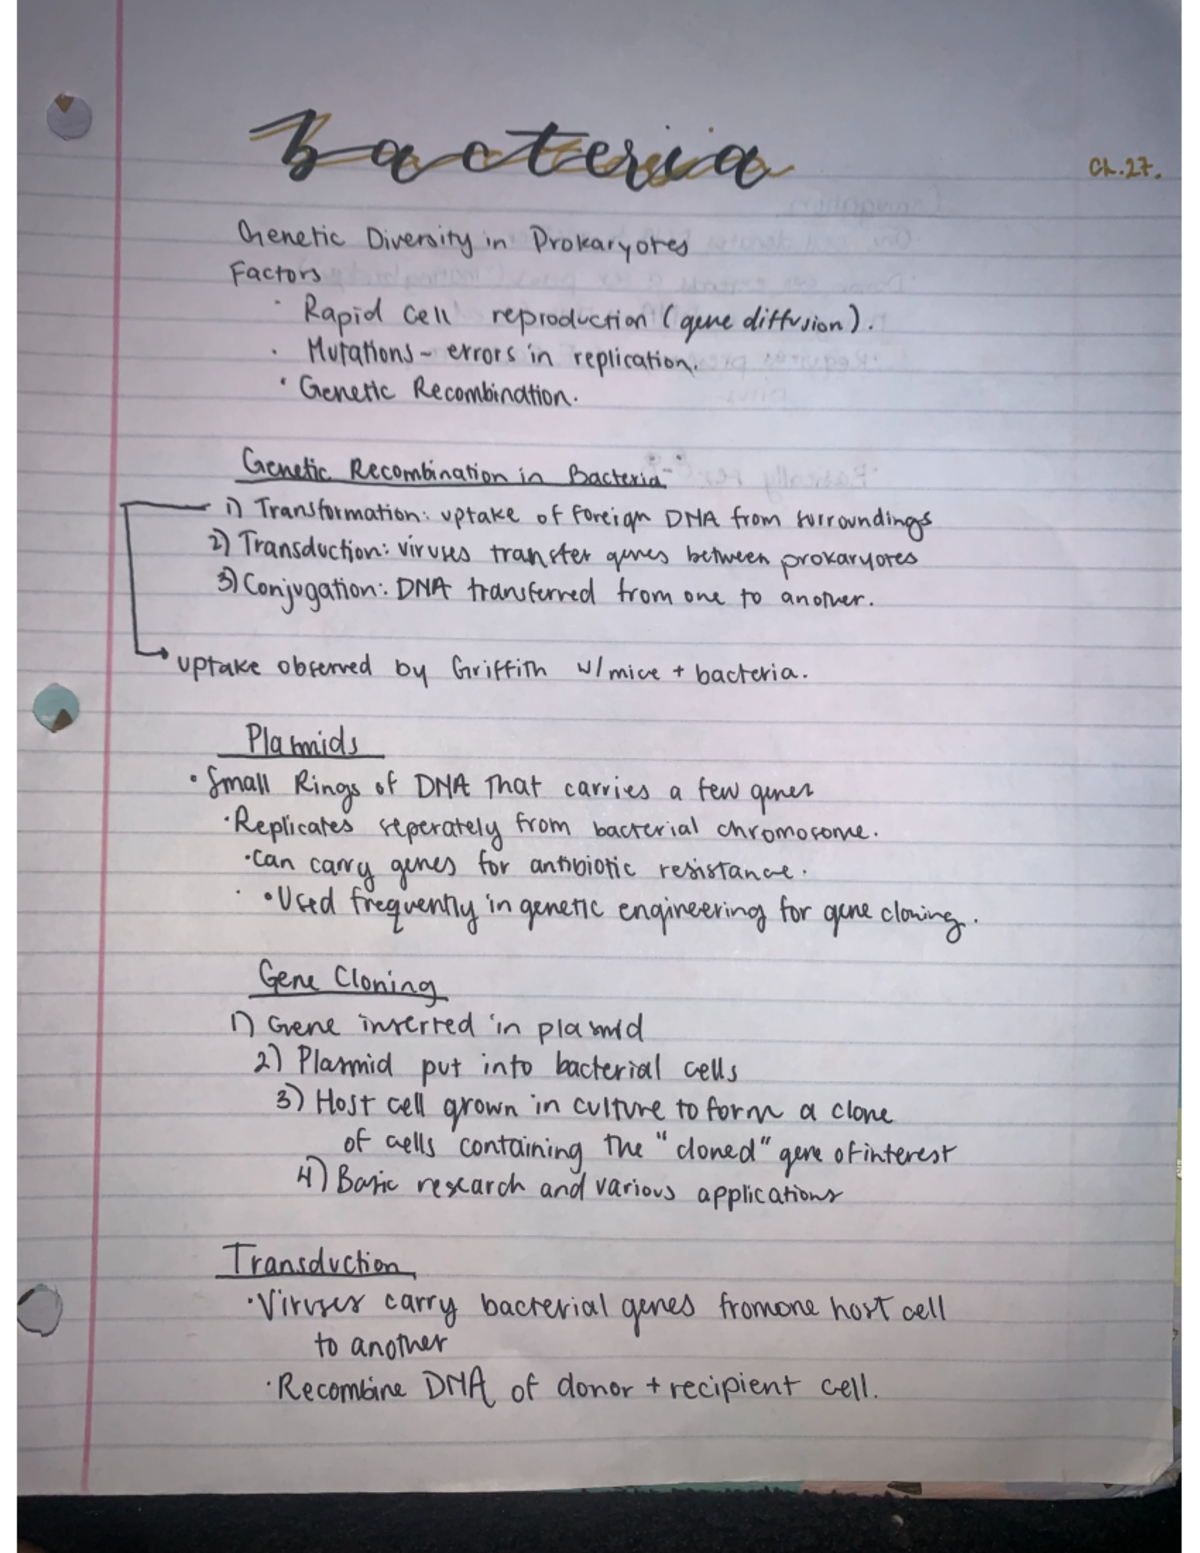 bacteria
Ch.27.
Genetic Diversity in Prokaryotes
Factors
· Rapid Cell reproduction (gene diffusion).
· Mutations - errors in replication.
· Genetic Recombination.
Genetic Recombination in Bacteria
1) Transformation: uptake of foreign DNA from surroundings
2) Transduction: viruses transfer genes between prokaryotes
3) Conjugation: DNA transferred from one to another.
→ uptake observed by Griffith w/ mice + bacteria.
Plasmids
· Small Rings of DNA That carries a few genes
· Replicates seperately from bacterial chromosome.
· Can carry genes for antibiotic resistance.
· Used frequently in genetic engineering for gene cloning.
Gene Cloning
1) Gene inserted in plasmid
2) Plasmid put into bacterial cells
3) Host cell grown in culture to form a clone
of cells containing the "cloned" gene of interest
4) Basic research and various applications
Transduction
· Viruses carry bacterial genes from one host cell
to another
· Recombine DNA of donor + recipient cell.